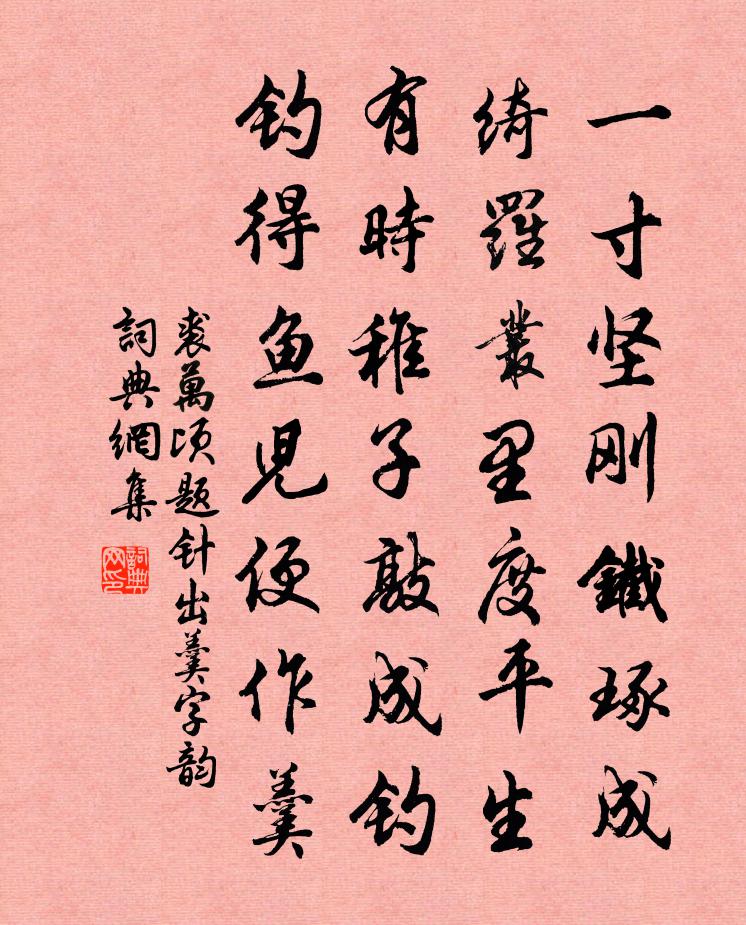 一寸坚刚鐵琢成
绮羅叢里度平生
有時稚子敲成钓
钓得鱼児便作羹
裘萬顷题针出羹字韵
詞典網集
詞典网印